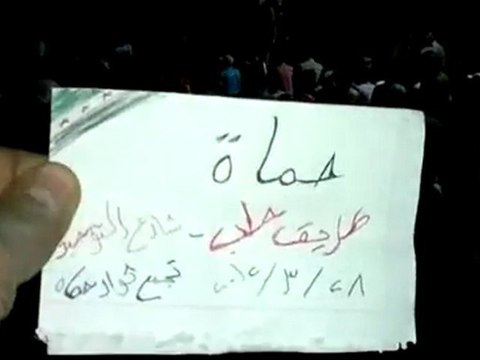 حماة
طريق حلب - شارع التوحيد
٢٨/٣/٢٠١٢ تجمع ثوار حماة